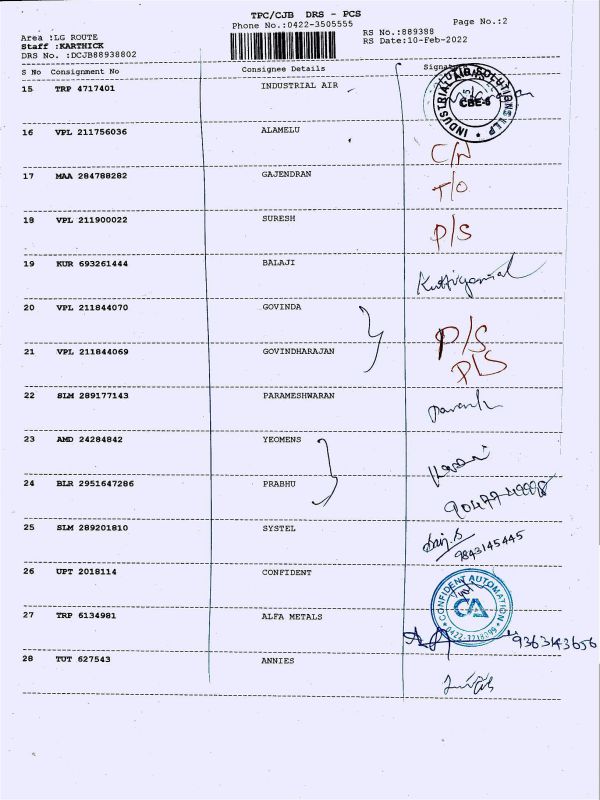 TPC/CJB DRS - PCS
Phone No.:0422-3505555
Page No.:2
Area :LG ROUTE
Staff :KARTHICK
DRS No. :DCJB88938802
RS No.:889388
RS Date:10-Feb-2022
S No Consignment No Consignee Details Signature
15 TRP 4717401 INDUSTRIAL AIR
INDUSTRIAL AIR SOLUTIONS LLP
CBE-6
16 VPL 211756036 ALAMELU C/N
17 MAA 284788282 GAJENDRAN T/O
18 VPL 211900022 SURESH P/S
19 KUR 693261444 BALAJI
20 VPL 211844070 GOVINDA P/S
21 VPL 211844069 GOVINDHARAJAN P/S
22 SLM 289177143 PARAMESHWARAN
23 AMD 24284842 YEOMENS
24 BLR 2951647286 PRABHU
25 SLM 289201810 SYSTEL
9843145445
26 UPT 2018114 CONFIDENT
CONFIDENT AUTOMATION
CA
27 TRP 6134981 ALFA METALS
9363143656
28 TUT 627543 ANNIES